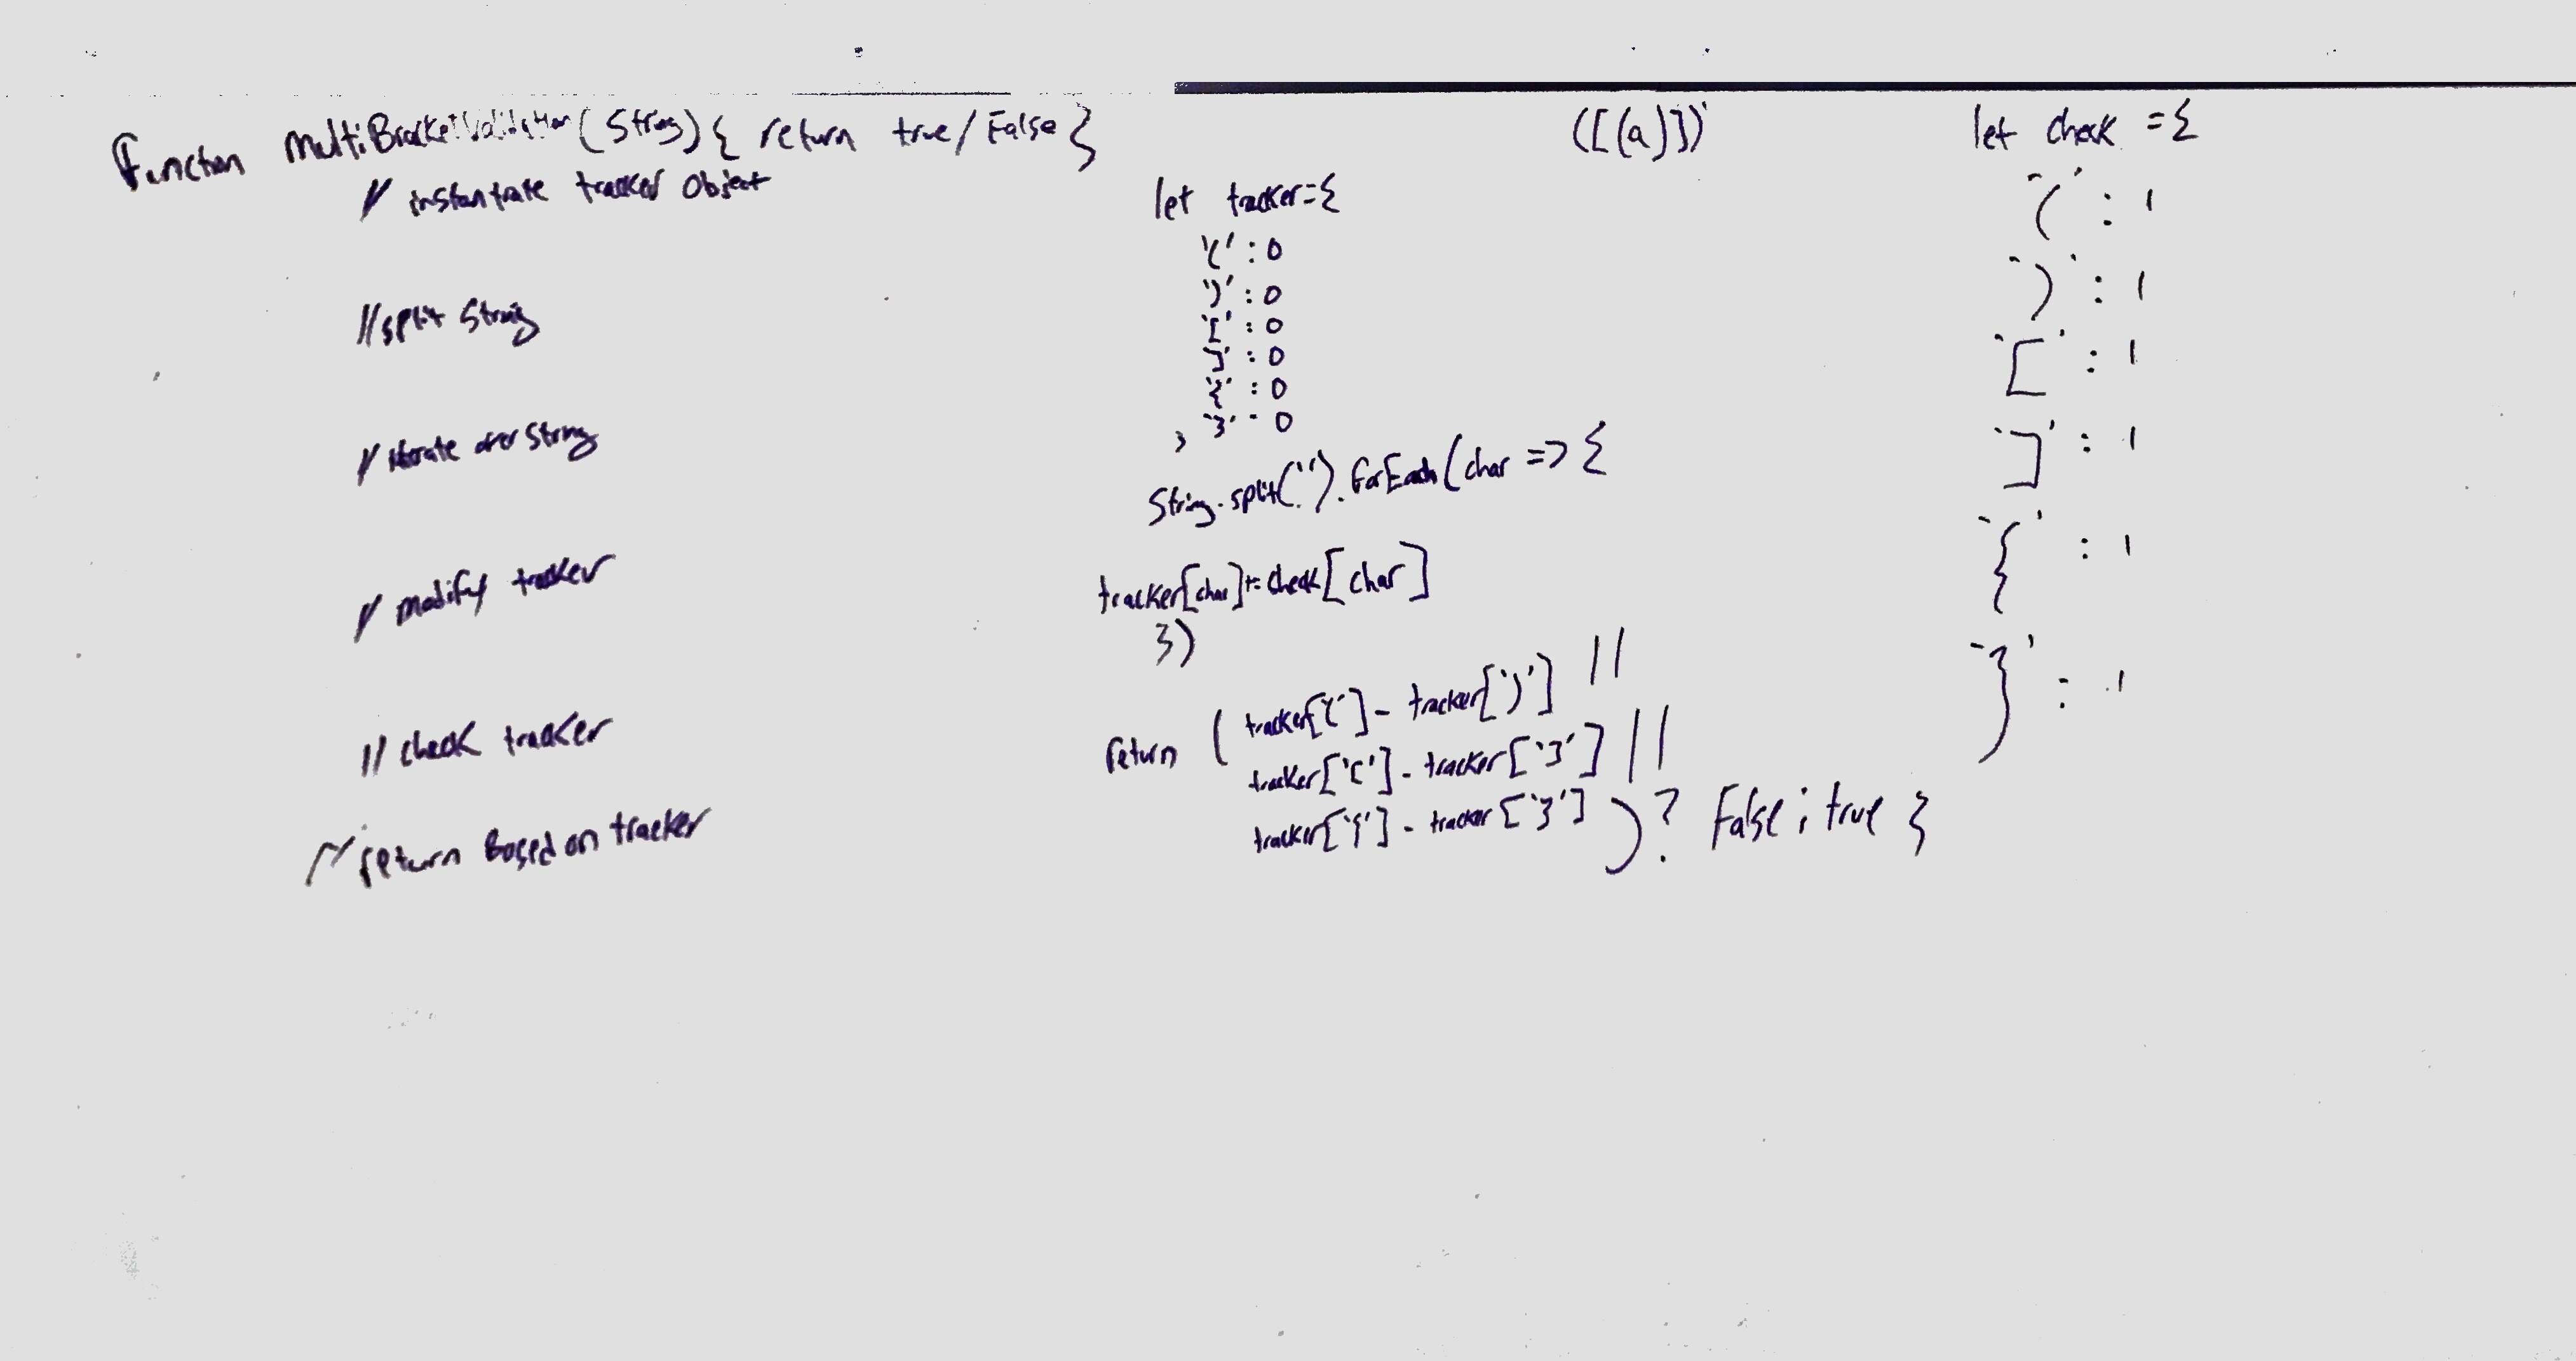 function multiBracketValidation(String) { return true/False }
// instantiate tracker object
// split string
// iterate over string
// modify tracker
// check tracker
// return Based on tracker
([(a)])'
let tracker = {
'(' : 0
')' : 0
'[' : 0
']' : 0
'{' : 0
'}' : 0
}
String.split('').forEach(char => {
tracker[char] += check[char]
})
return ( tracker['('] - tracker[')'] ||
tracker['['] - tracker[']'] ||
tracker['{'] - tracker['}'] ) ? False ; true }
let check = {
'(' : 1
')' : 1
'[' : 1
']' : 1
'{' : 1
'}' : 1